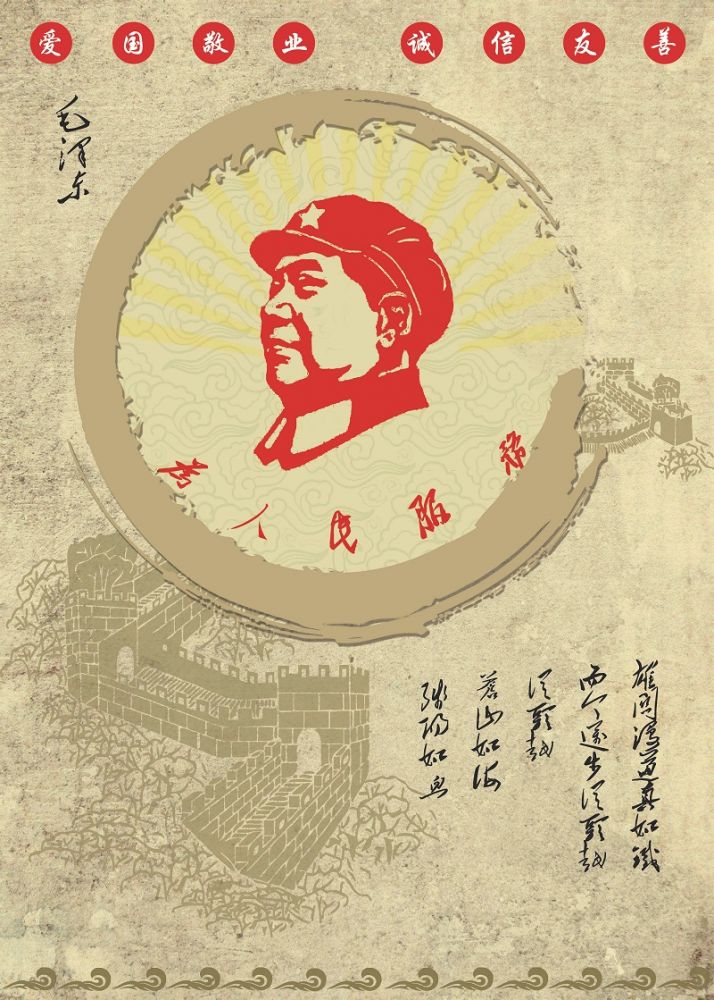 爱国敬业 诚信友善
毛泽东
为人民服务
雄关漫道真如铁
而今迈步从头越
从头越
苍山如海
残阳如血